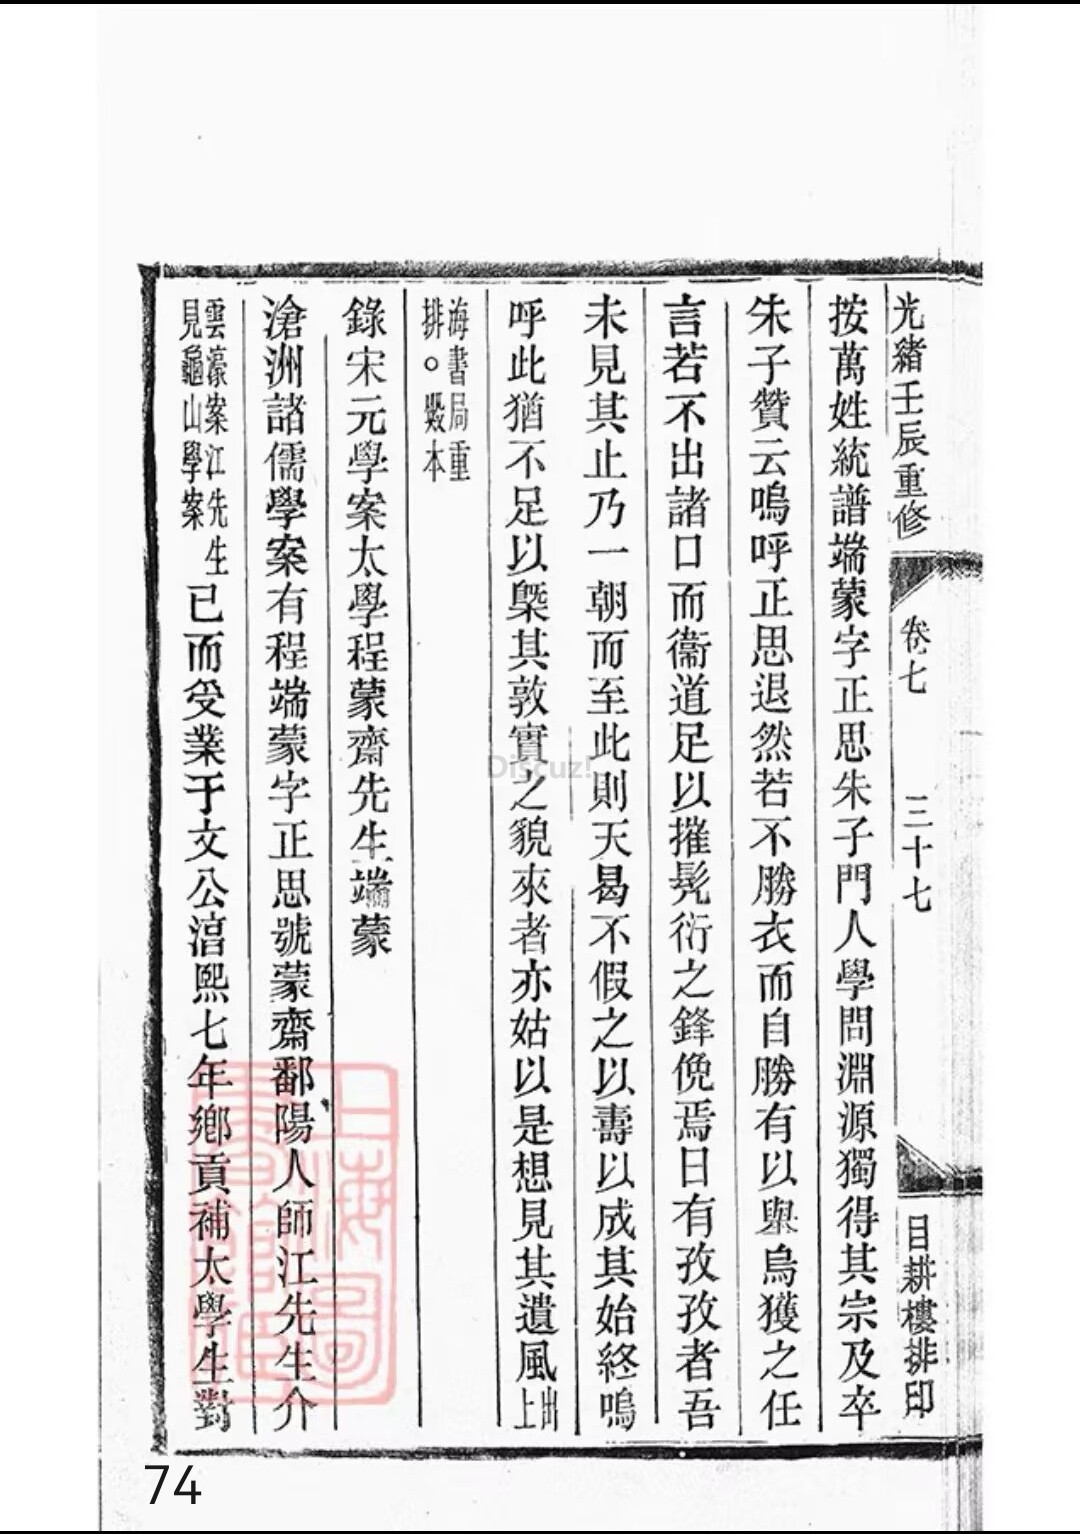 光緒壬辰重修
卷七
三十七
目耕樓排印
按萬姓統譜端蒙字正思朱子門人學問淵源獨得其宗及卒
朱子贊云嗚呼正思退然若不勝衣而自勝有以舉烏獲之任
言若不出諸口而衞道足以摧髡衍之鋒俛焉日有孜孜者吾
未見其止乃一朝而至此則天曷不假之以壽以成其始終嗚
呼此猶不足以槩其敦實之貌來者亦姑以是想見其遺風出上
海書局重
排○殿本
錄宋元學案太學程蒙齋先生端蒙
滄洲諸儒學案有程端蒙字正思號蒙齋鄱陽人師江先生介
雲濠案江先生
見龜山學案
已而受業于文公湻熙七年鄉貢補太學生對
上海圖
書館藏
Discuz!
74